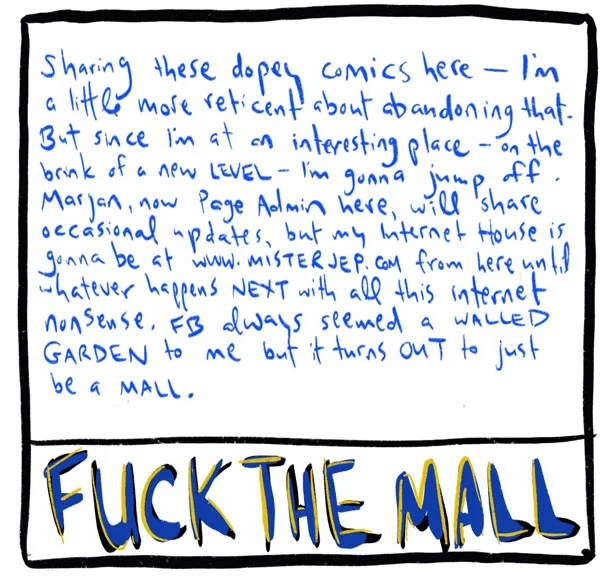 Sharing these dopey comics here — I'm
a little more reticent about abandoning that.
But since I'm at an interesting place – on the
brink of a new LEVEL – I'm gonna jump off.
Marjan, now Page Admin here, will share
occasional updates, but my Internet House is
gonna be at WWW.MISTERJEP.COM from here until
whatever happens NEXT with all this internet
nonsense. FB always seemed a WALLED
GARDEN to me but it turns OUT to just
be a MALL.
FUCK THE MALL